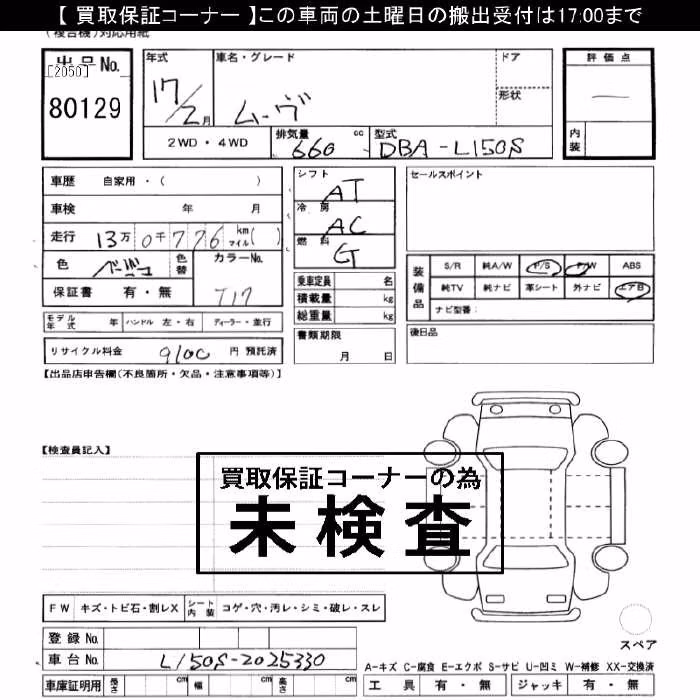 【 買取保証コーナー 】この車両の土曜日の搬出受付は17:00まで
(複合機)対応用紙
出品No.
[2050]
80129
年式
17/2月
車名・グレード
ムーヴ
ドア
形状
評価点
—
内装
2WD・4WD
排気量 660 cc
型式 DBA-L150S
車歴 自家用・( )
車検 年 月
走行 13万 0千 776 km マイル( )
色 ベージュ 色替
カラーNo. T17
保証書 有・無
シフト AT
冷房 AC
燃料 G
乗車定員 名
積載量 kg
総重量 kg
セールスポイント
装備品
S/R 純A/W P/S P/W ABS
純TV 純ナビ 革シート 外ナビ エアB
ナビ型番:
モデル年式 年 ハンドル 左・右 ディーラー・並行
書類期限
月 日
後日品
リサイクル料金 9100 円 預託済
【出品店申告欄(不良箇所・欠品・注意事項等)】
【検査員記入】
買取保証コーナーの為
未検査
FW キズ・トビ石・割レX シート内装 コゲ・穴・汚レ・シミ・破レ・スレ
登録No.
車台No. L150S-2025330
スペア
A-キズ C-腐食 E-エクボ S-サビ U-凹ミ W-補修 XX-交換済
車庫証明用 長さ cm 幅 cm 高さ cm
工具 有・無 ジャッキ 有・無